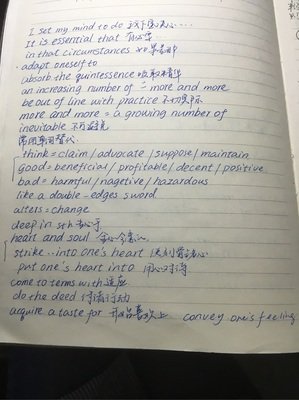 I set my mind to do 我下定决心...
It is essential that 有必要
in that circumstances
adapt oneself to
absorb the quintessence 吸取精华
an increasing number of = more and more
be out of line with practice 不切实际
more and more = a growing number of
inevitable 不可避免
常用单词替代
think = claim / advocate / suppose / maintain
good = beneficial / profitable / decent / positive
bad = harmful / nagetive / hazardous
like a double-edges sword
alters = change
deep in sth
heart and soul 全心全意
strike .. into one's heart
put one's heart into 用心对待
come to terms with 适应
do the deed 付诸行动
acquire a taste for 喜欢上 convey one's feeling